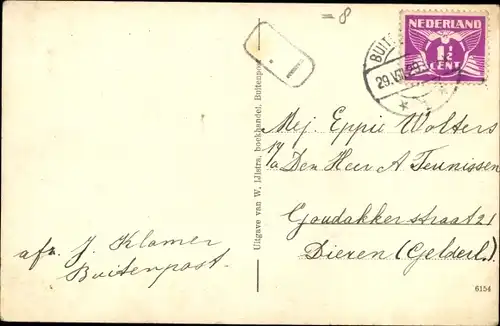 = 8
NEDERLAND
1½
CENT
BUIT
29.VII.29
Mej. Eppie Wolters
p/a Den Heer A Teunissen
Goudakkerstraat 21
Dieren (Gelderl.)
afz. J. Klamer
Buitenpost.
Uitgave van W. IJlstra, boekhandel, Buitenpost
6154